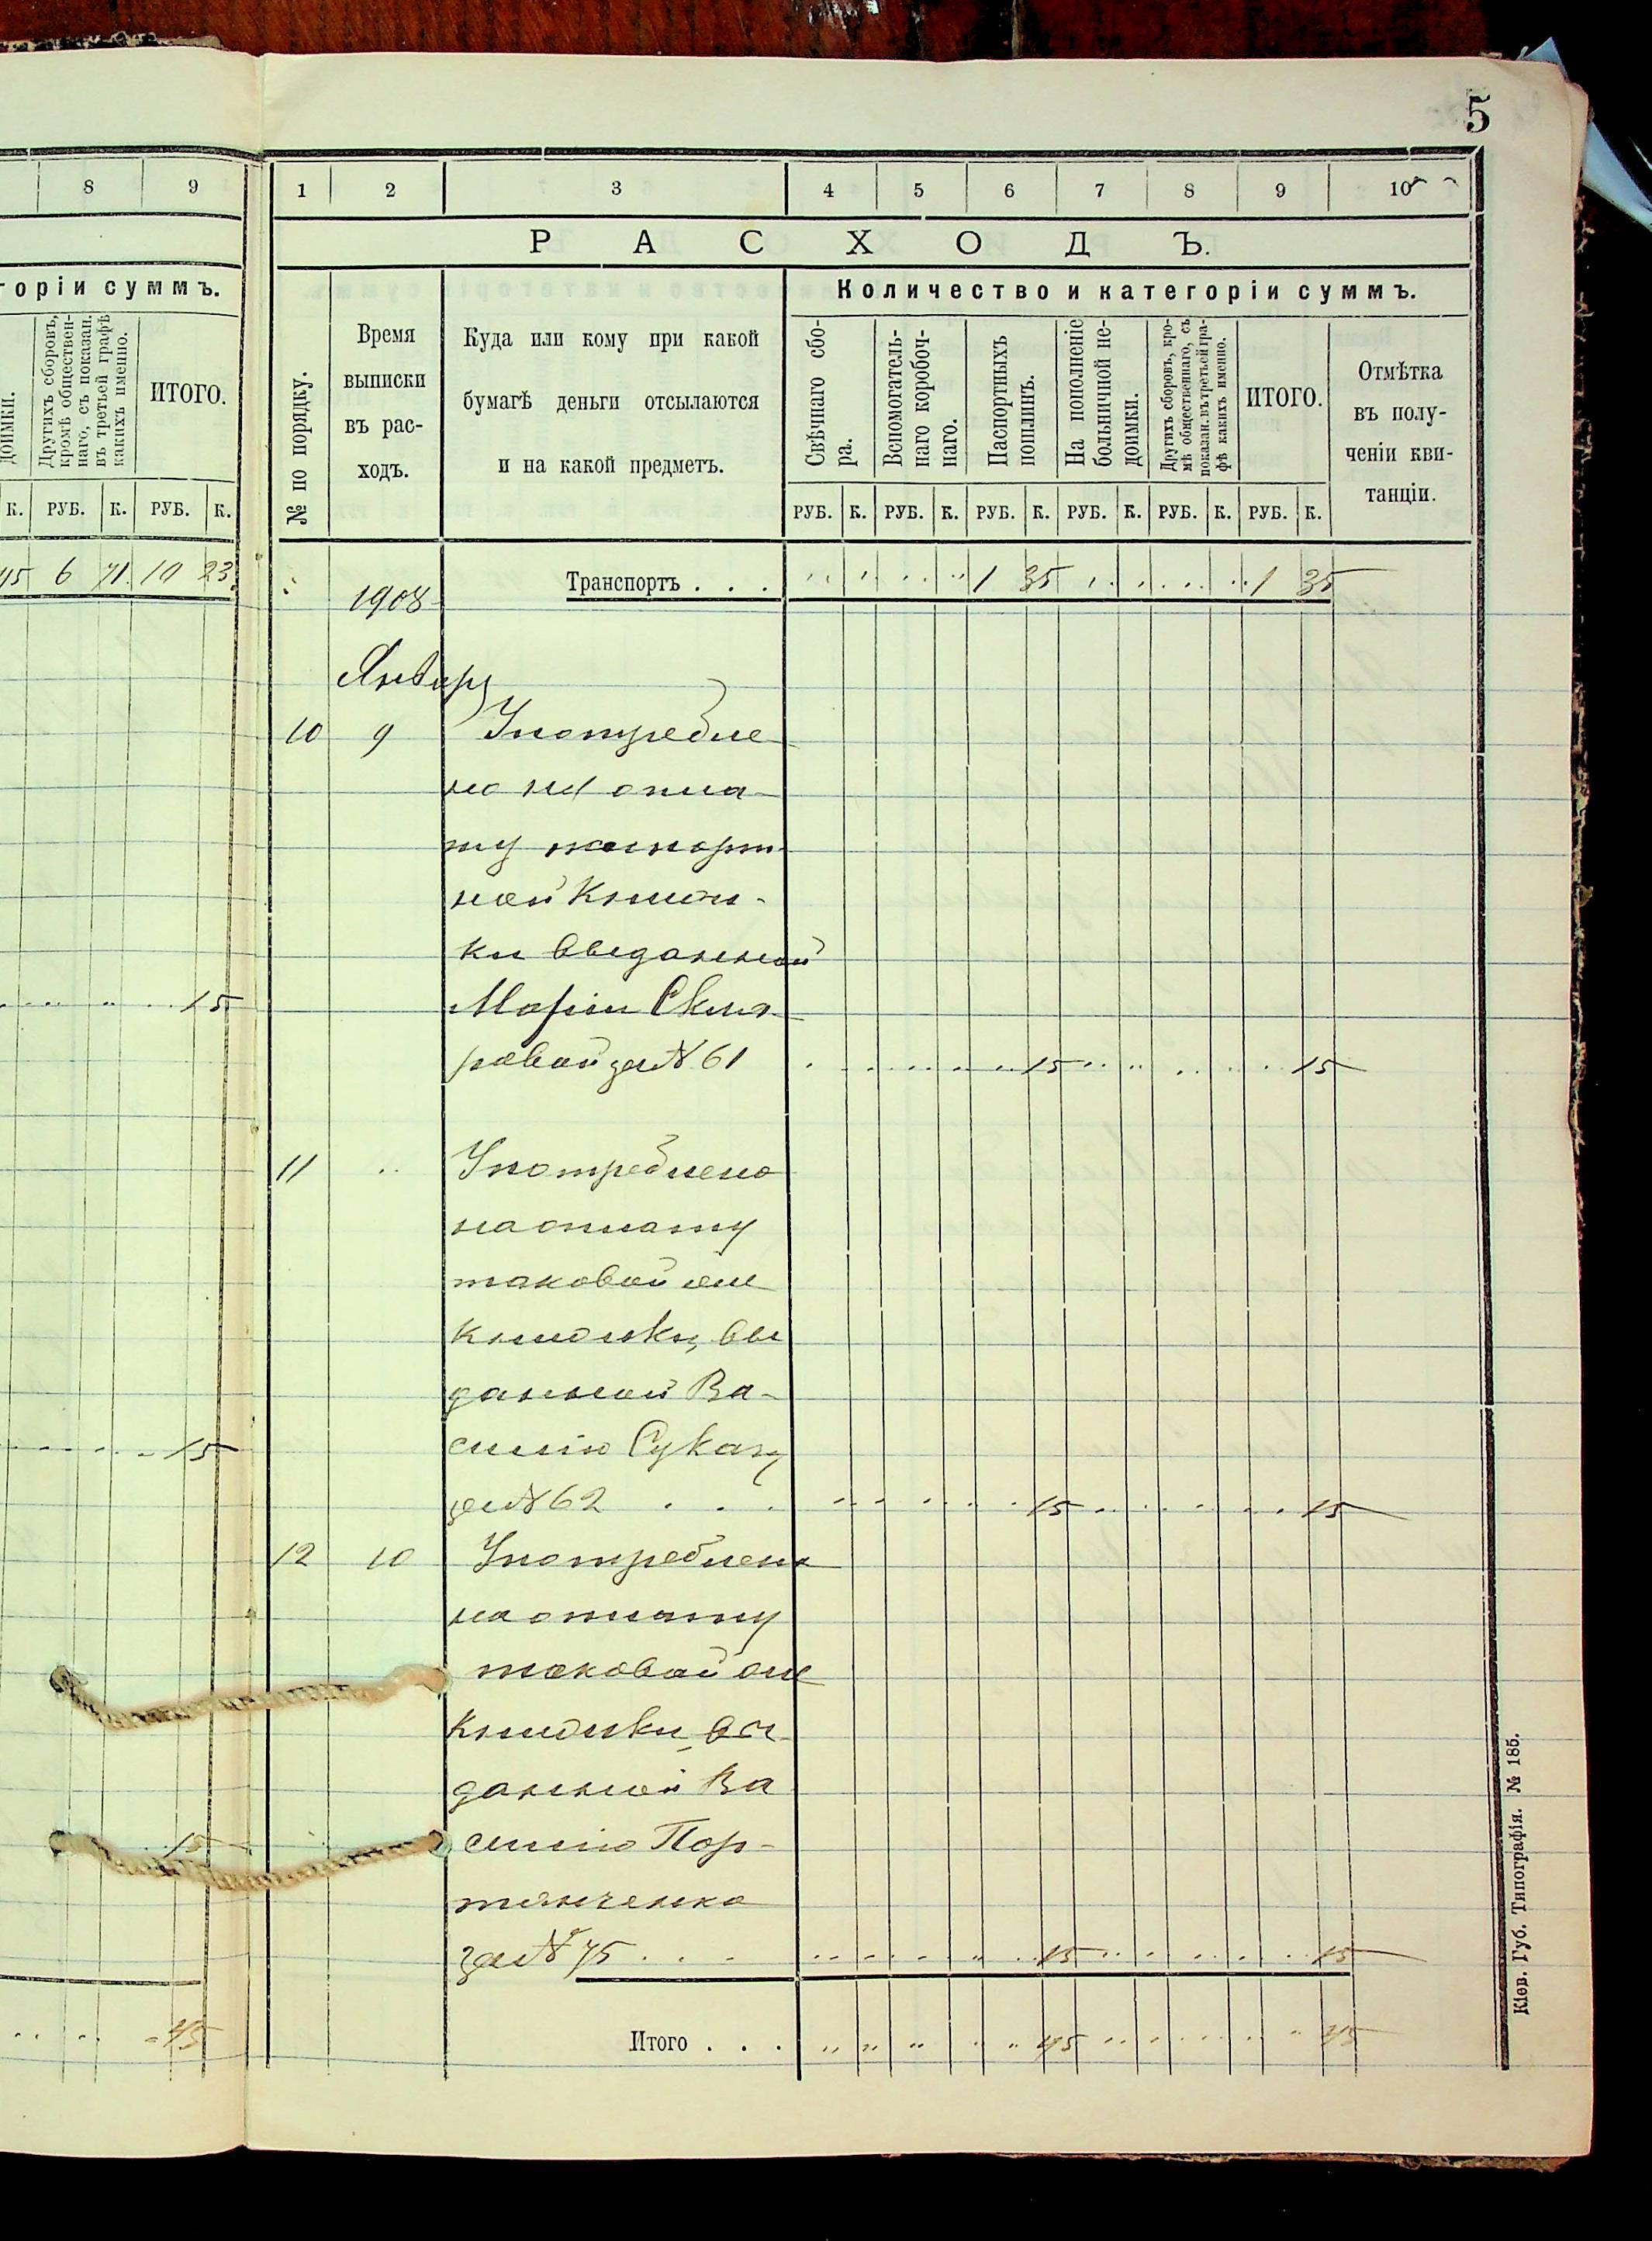 5
8 9
горіи суммъ.
доимки.
Другихъ сборовъ,
кромѣ обществен-
наго, съ показан.
въ третьей графѣ
какихъ именно.
ИТОГО.
К. РУБ. К. РУБ. К.
45 6 71 10 23
15
15
15
45
1 2 3 4 5 6 7 8 9 10
РАСХОДЪ.
Количество и категоріи суммъ.
№ по порядку.
Время
выписки
въ рас-
ходъ.
Куда или кому при какой
бумагѣ деньги отсылаются
и на какой предметъ.
Свѣчнаго сбо-
ра.
Вспомогатель-
наго коробоч-
наго.
Паспортныхъ
пошлинъ.
На пополненіе
больничной не-
доимки.
Другихъ сборовъ, кро-
мѣ общественнаго, съ
показан. въ третьей гра-
фѣ какихъ именно.
ИТОГО.
Отмѣтка
въ полу-
ченіи кви-
танціи.
РУБ. К. РУБ. К. РУБ. К. РУБ. К. РУБ. К. РУБ. К.
Транспортъ . . . 1 35 1 35
1908
Январь
10 9 Употребле
но на опла-
ту паспорт-
ной Книж-
ки выданной
Маріи Скля-
ровой за № 61 15 15
11 " Употреблено
на оплату
таковой же
книжки, вы
данной Ва-
силію
за № 62 . . . 15 15
12 10 Употреблено
на оплату
таковой же
Книжки, вы-
данной Ва
силію Пор-
тянченко
за № 75 . . . 15 15
Итого . . . 45 45
Кіев. Губ. Типографія. № 185.